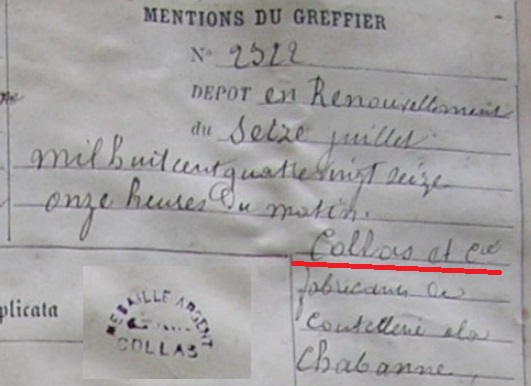 MENTIONS DU GREFFIER
N° 2322
DEPOT en Renouvellement
du Seize juillet
mil huit cent quatre vingt seize
onze heures du matin.
Collas et Cie
fabricants de
plicata
coutellerie à la
Chabanne
MEDAILLE ARGENT
COLLAS